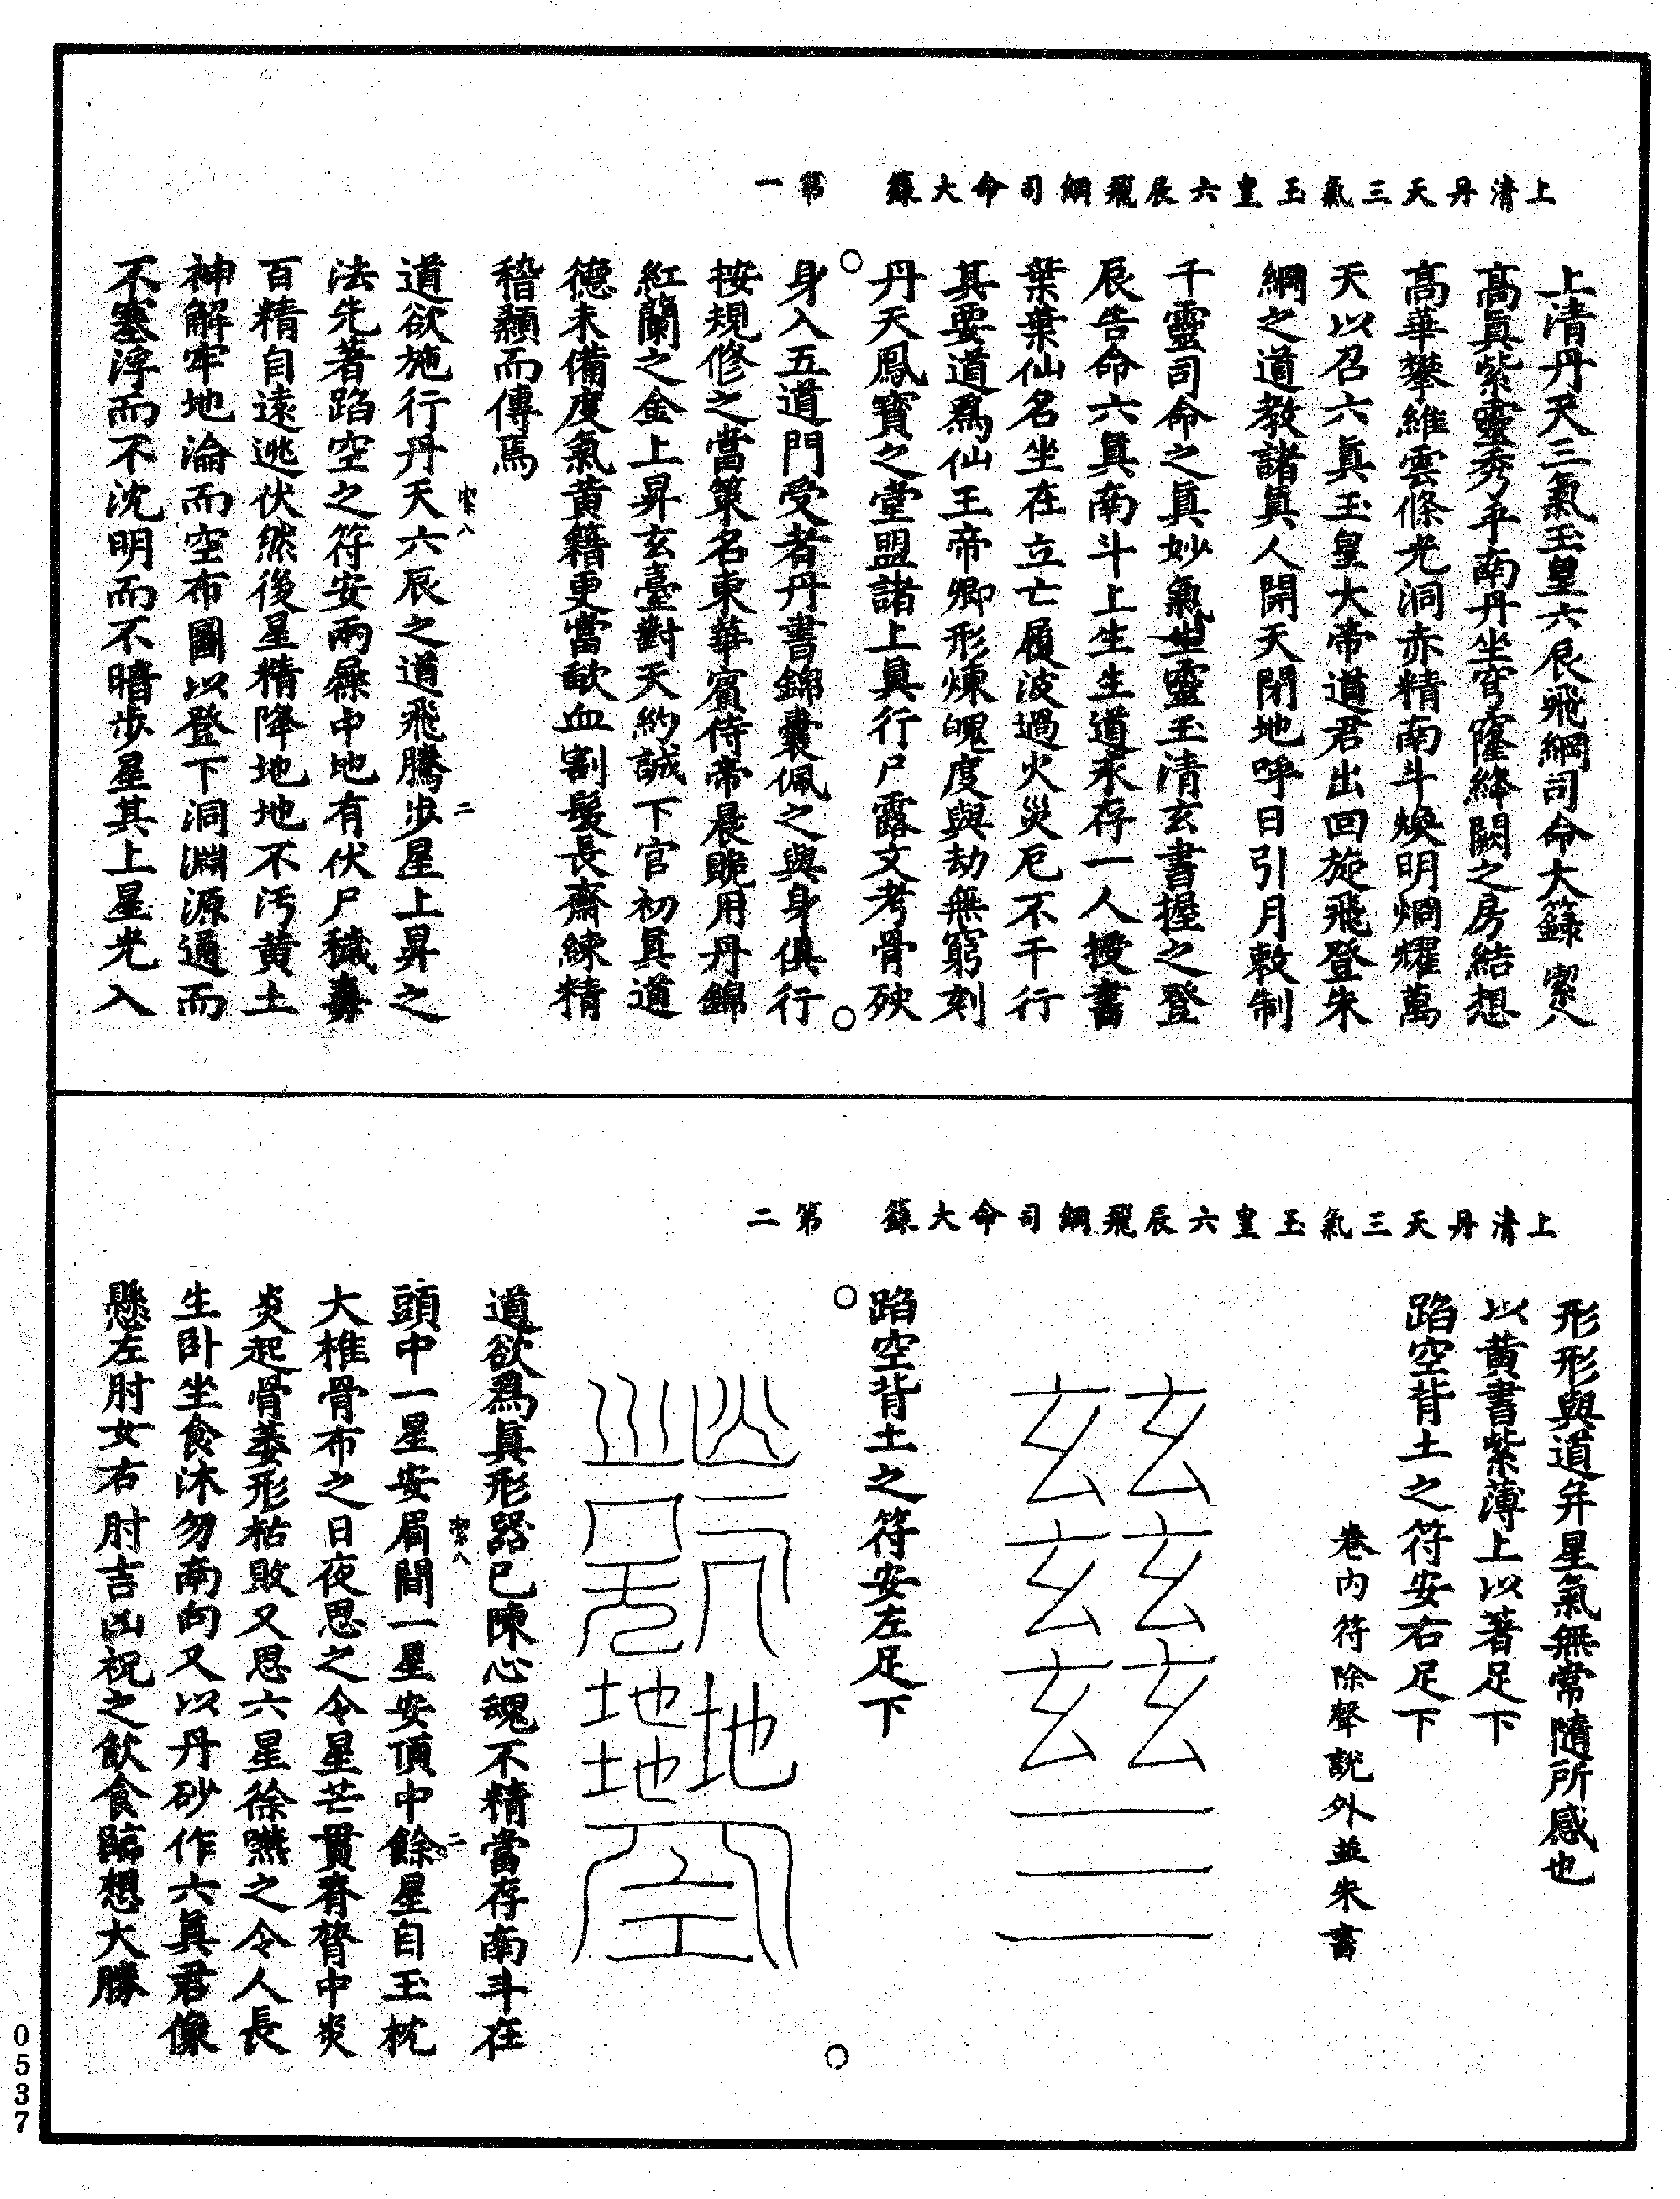 上清丹天三氣玉皇六辰飛綱司命大籙　第一
上清丹天三氣玉皇六辰飛綱司命大籙　密八
高真紫靈秀乎南丹坐穹窿絳闕之房結想
高華攀維雲條光洞赤精南斗煥明烱耀萬
天以召六真玉皇大帝道君出回旋飛登朱
綱之道教諸真人開天閉地呼日引月敕制
千靈司命之真妙氣坐靈玉清玄書握之登
辰告命六真南斗上生生道永存一人授書
葉葉仙名坐在立亡履波過火災厄不干行
其要道爲仙王帝卿形煉魄度與劫無窮刻
丹天鳳寶之堂盟諸上真行尸露文考骨殃
身入五道門受者丹書錦囊佩之與身俱行
按規修之當策名東華賓侍帝晨賝用丹錦
紅蘭之金上昇玄臺對天約誠下官初真道
德未備度氣黄籍更當歃血割髮長齋練精
稽顙而傳焉
道欲施行丹天六辰之道飛騰步星上昇之
密八　二
法先著蹈空之符安兩屧中地有伏尸穢毒
百精自遠逃伏然後星精降地地不汚黄土
神解牢地淪而空布圖以登下洞淵源通而
不塞浮而不沈明而不暗步星其上星光入
上清丹天三氣玉皇六辰飛綱司命大籙　第二
形形與道并星氣無常隨所感也
以黄書紫薄上以著足下
蹈空背土之符安右足下
卷内符除聲說外並朱書
蹈空背土之符安左足下
道欲爲真形器已陳心魂不精當存南斗在
頭中一星安眉間一星安頂中餘星自玉枕
密八　二
大椎骨布之日夜思之令星芒貫脊膂中炎
炎起骨萎形枯敗又思六星徐嚥之令人長
生卧坐食沐勿南向又以丹砂作六真君像
懸左肘女右肘吉凶祝之飲食臨想大勝
0537